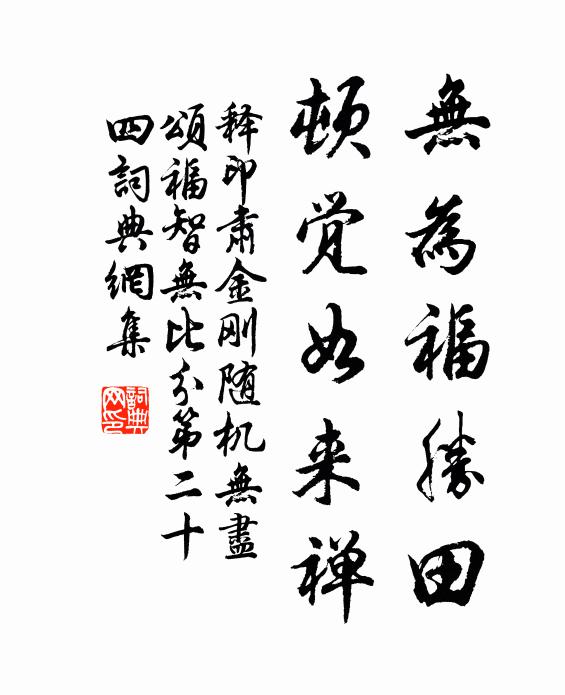 無為福勝田
頓覚如来禅
释印肃金刚随机無盡
頌福智無比分第二十
四詞典網集
詞典网印